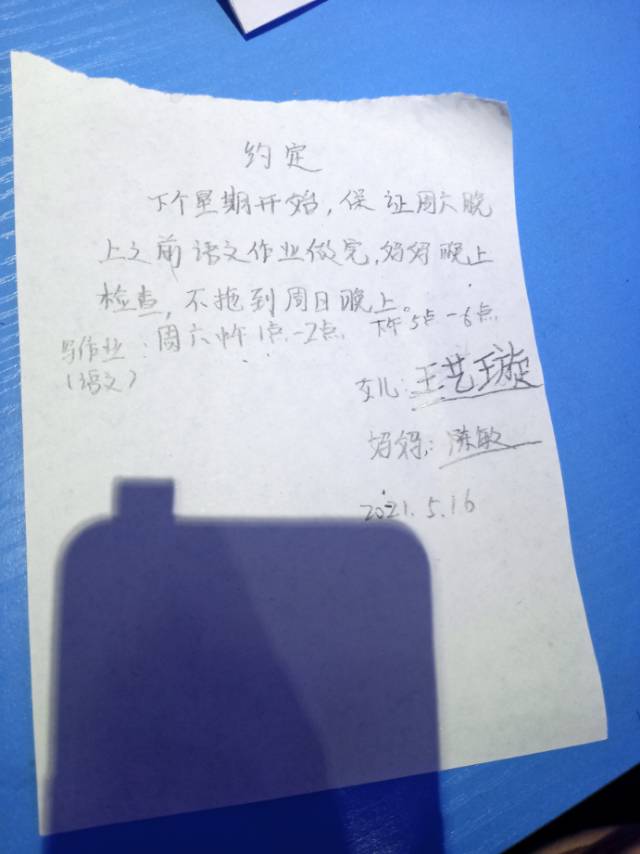 约定
下个星期开始，保证周六晚
上之前语文作业做完，妈妈晚上
检查，不拖到周日晚上。
写作业：周六中午1点-2点，下午5点-6点，
（语文）
女儿：王艺璇
妈妈：陈敏
2021.5.16